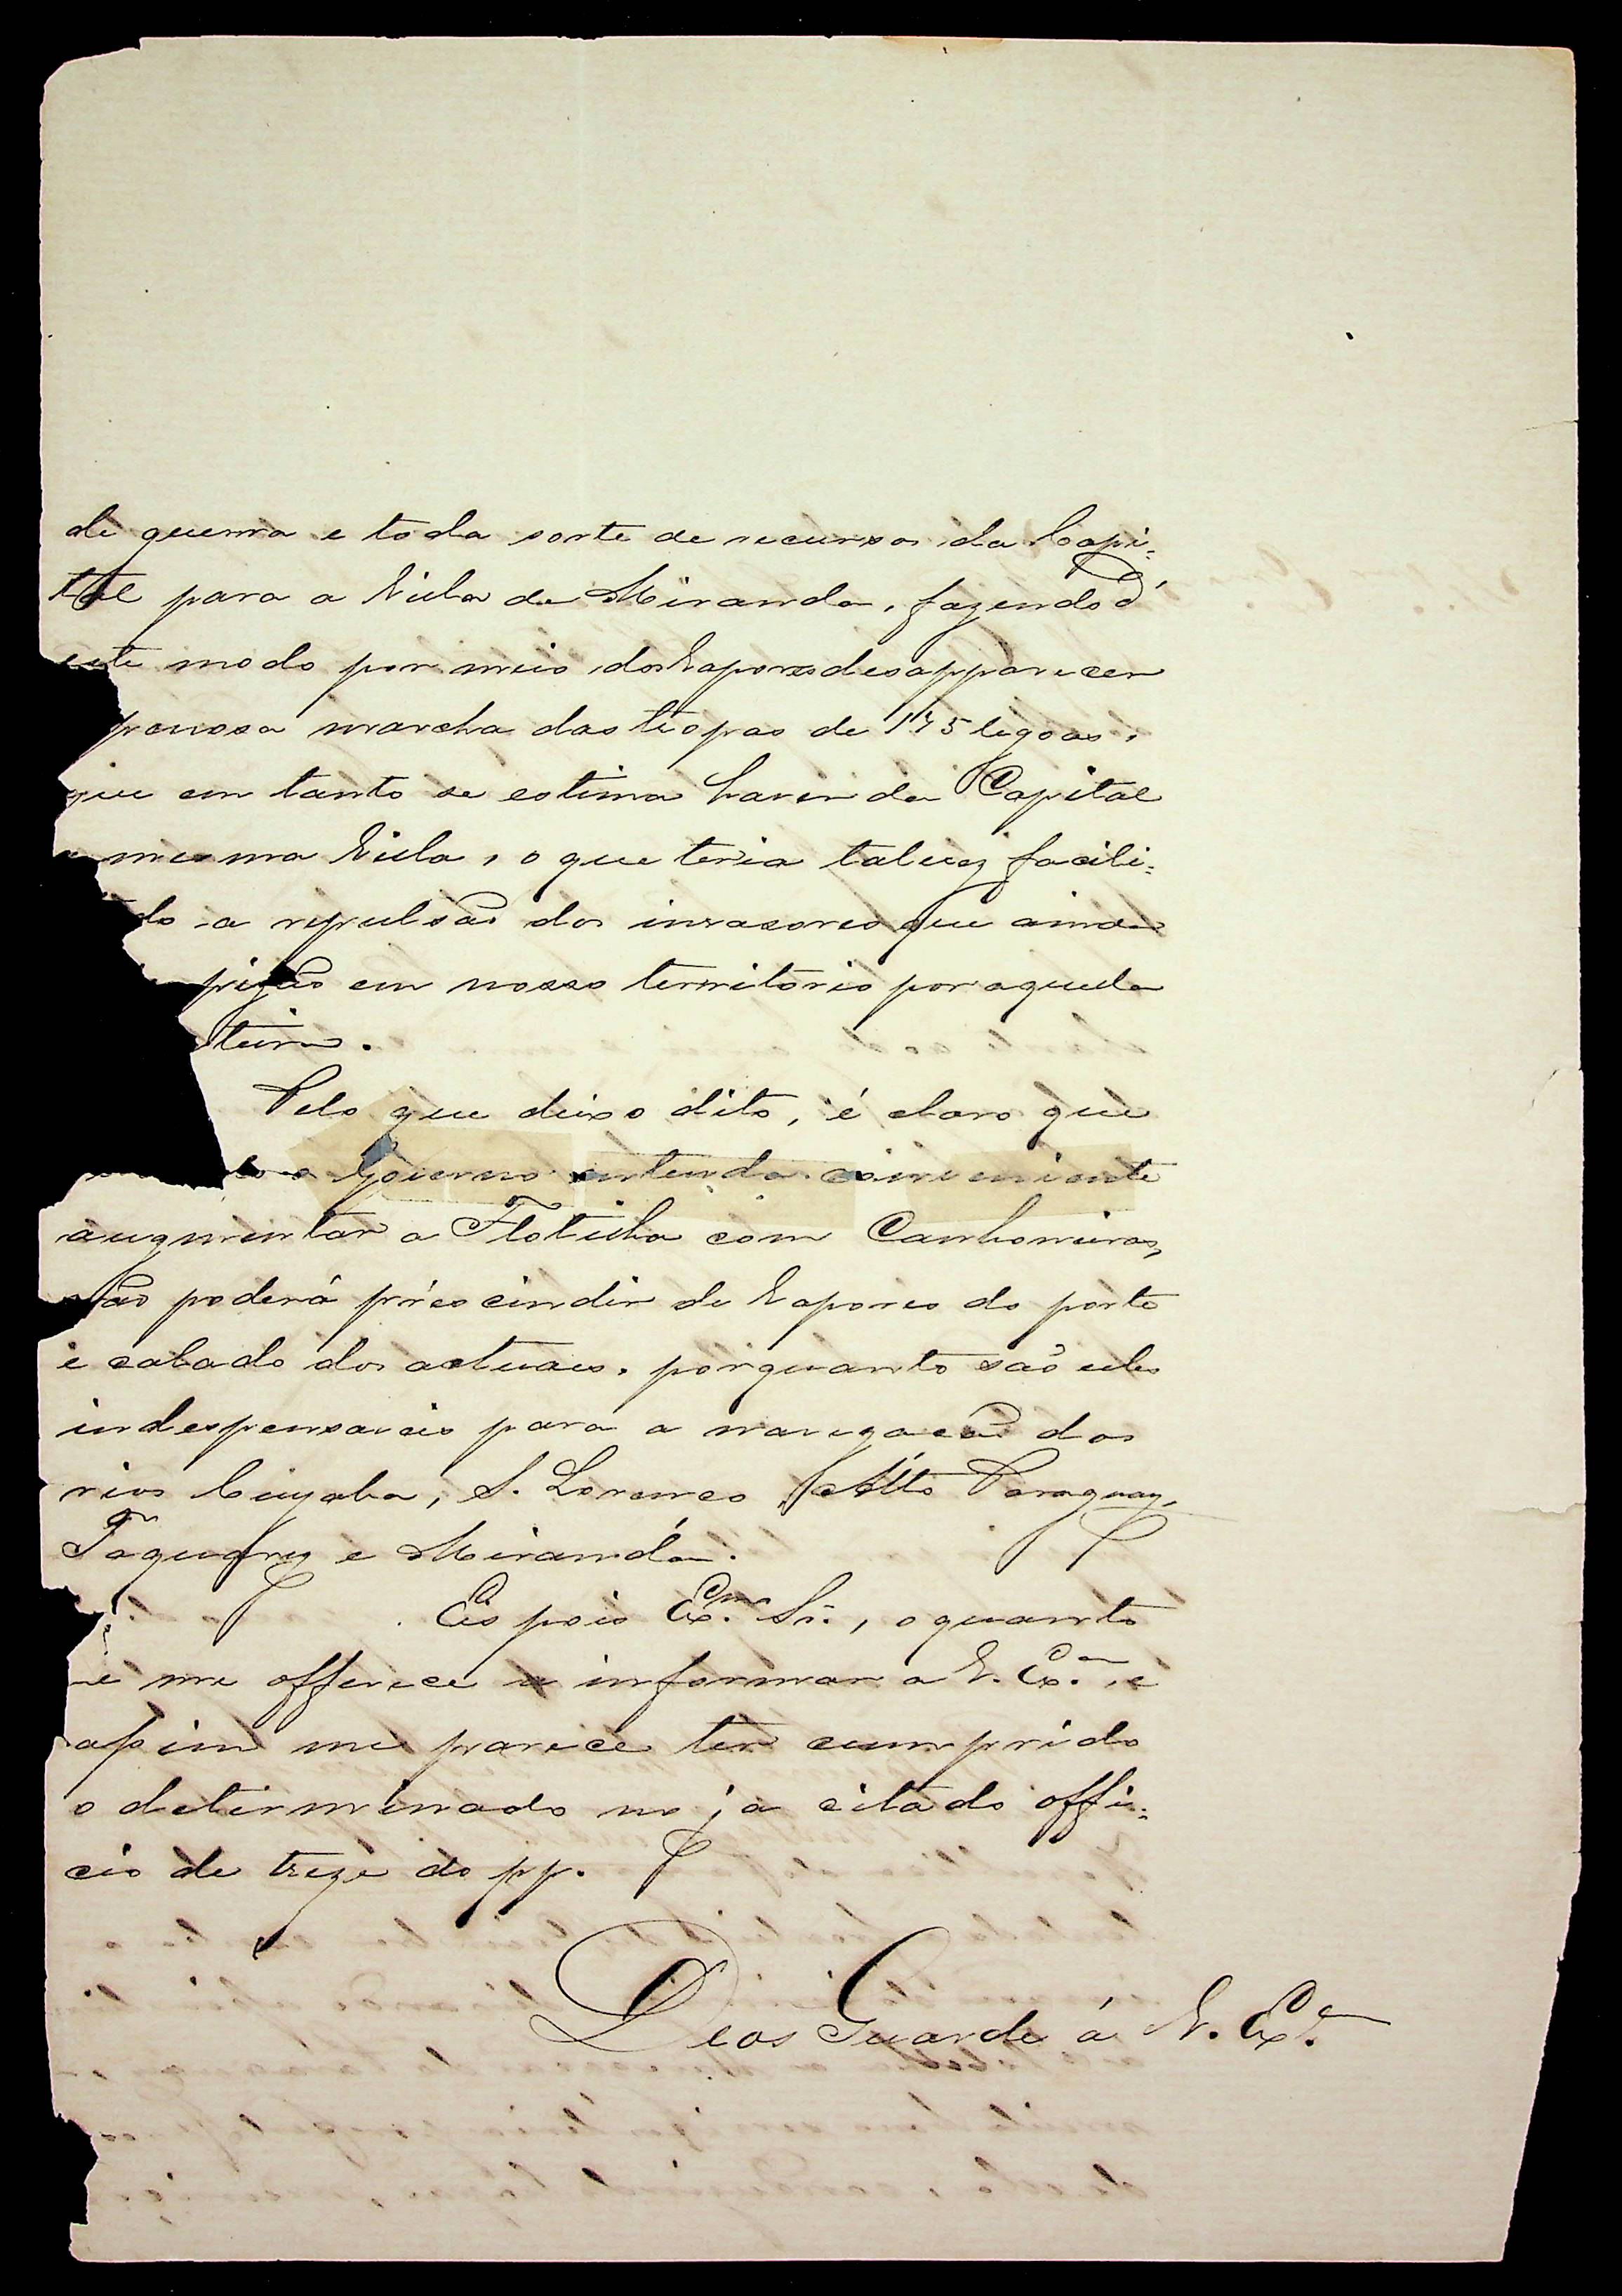 de guerra e toda sorte de recursos da Capi=
tal para a Villa de Miranda, fazendo d'
este modo por meio dos Vapores desapparecer
penosa marcha das tropas de 175 legoas,
que em tanto se estima haver da Capital
a mesma Villa, o que teria talvez facili=
do a repulsão dos invasores que ainda
pizão em nosso territorio por aquella
teira.
Pelo que deixo dito, é claro que
o Governo entenda conveniente
augmentar a Flotilha com Canhoneiras,
não poderá prescindir de Vapores do porte
e calado dos actuaes, porquanto são elles
indespensaveis para a navegacão dos
rios Cuyaba, S. Lourenco, Alto Paraguay,
Taquary e Miranda.
Eis pois Ex.mo Sr., o quanto
se me offerece a informar a V. Ex.a, e
assim me parece ter cumprido
o determinado no já citado offi=
cio de treze do pp.
Deos Guarde á V. Ex.a